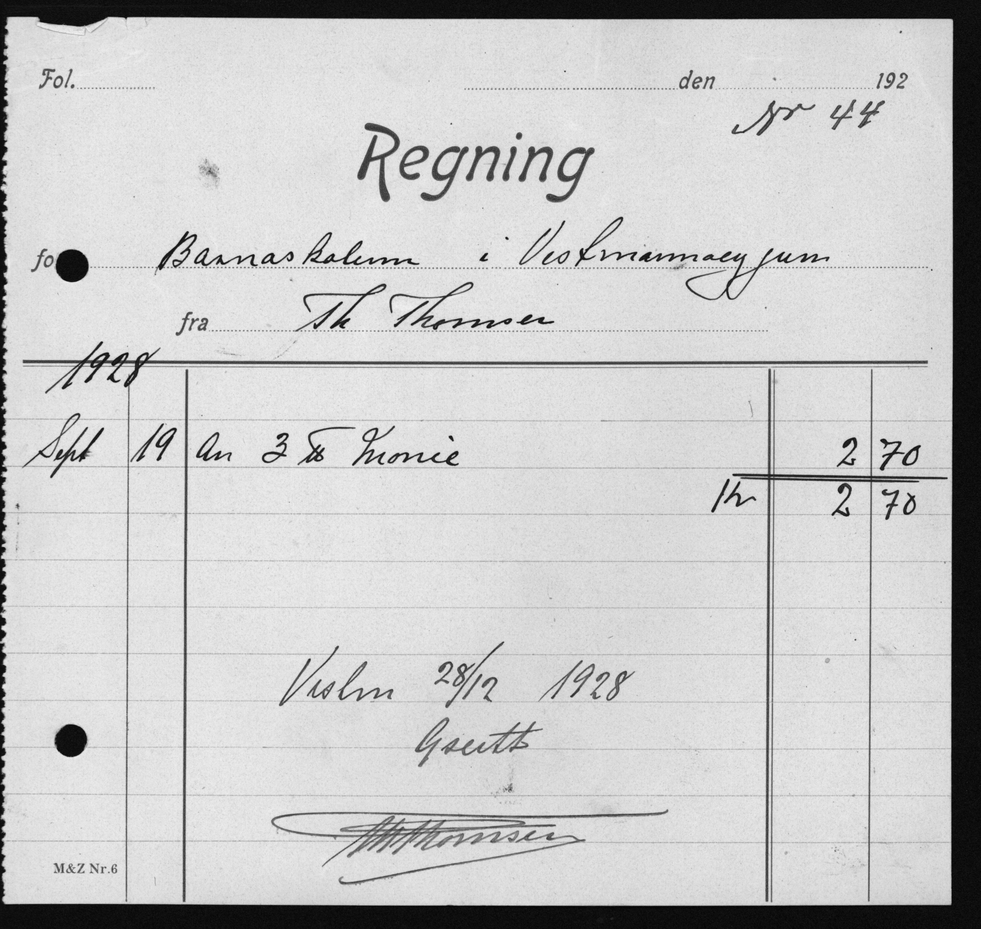 Fol. den 192
Nr 44
Regning
fo Barnaskolum i Vestmannaeyjum
fra Th Thomsen
1928
Sept 19 An 3 ℔ 2 70
Kr 2 70
Vestm 28/12 1928
Th Thomsen
M&Z Nr.6